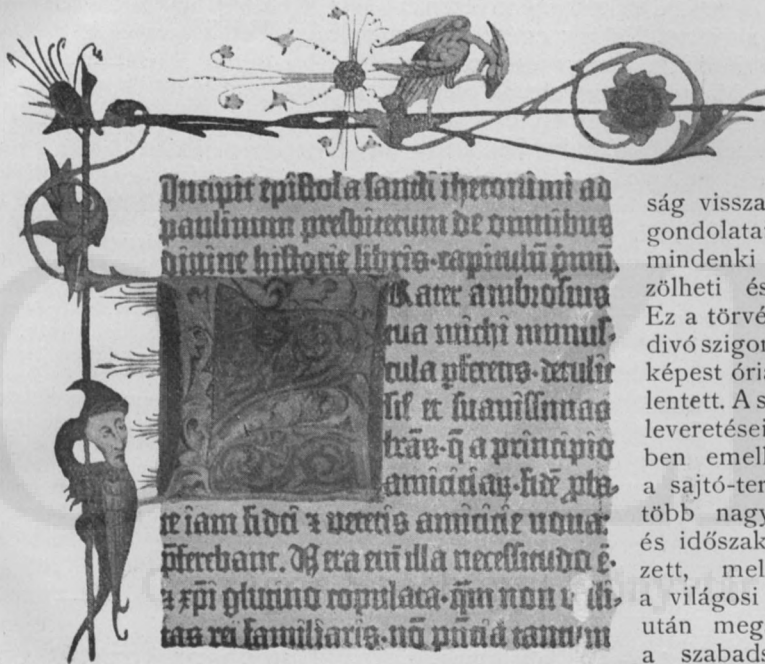 Incipit epistola sancti iheronimi ad
paulinum presbiterum de omnibus
divine historie libris· capitulũ p̃mũ.
Rater ambrosius
tua michi munus-
cula p̱ferens· detulit
sil̛ et suavissimas
lr̃as· q̃ a principio
amiciciaꝝ· fidẽ ꝓba-
te iam fidei ⁊ veteris amicicie nova:
p̃ferebant. Vera eni̅ illa necessitudo ẽ·
⁊ xp̃i glutino copulata· q̃m non utili-
tas rei familiaris· nõ p̃ncia tantum
ság vissza
gondolata
mindenki
zölheti és
Ez a törvé
divó szigor
képest óriá
lentett. A s
leveretései
ben emell
a sajtó-ter
több nagy
és időszak
zett, mel
a világosi
után meg
a szabads